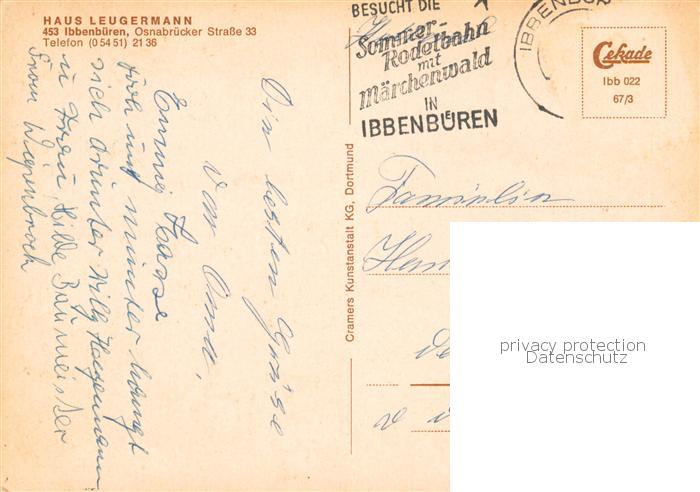 HAUS LEUGERMANN
453 Ibbenbüren, Osnabrücker Straße 33
Telefon (0 54 51) 21 36
BESUCHT DIE
Sommer-
Rodelbahn
mit
Märchenwald
IN
IBBENBÜREN
IBBENBÜR
Cekade
Ibb 022
67/3
Cramers Kunstanstalt KG, Dortmund
Die besten Grüße
von Oma.
Emmy Haase
froh und munter
sich Willy Hagemann
u Frau Hilde Baumeister
Familie
privacy protection
Datenschutz